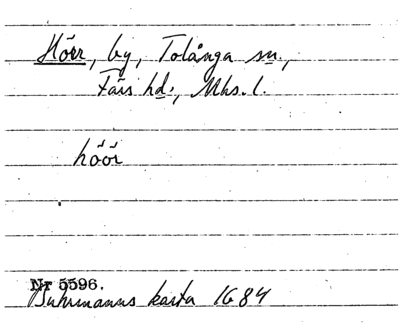 Hörr, by, Tolånga sn.,
Färs hd., Mhs. l.
höör
Nr 5596.
Buhrmanns karta 1684